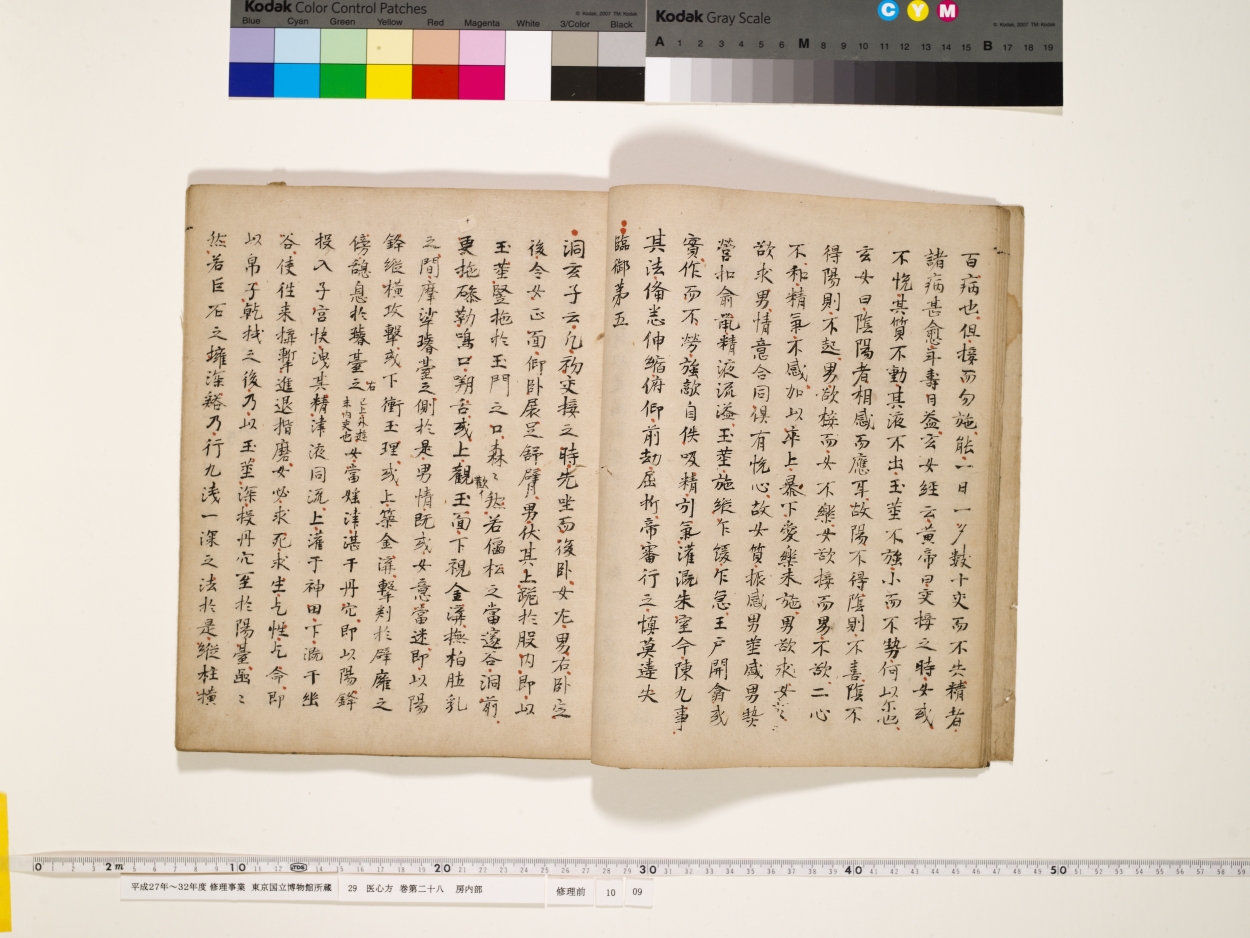 Kodak Color Control Patches
© Kodak, 2007 TM: Kodak
Blue Cyan Green Yellow Red Magenta White 3/Color Black
Kodak Gray Scale
C Y M
© Kodak, 2007 TM: Kodak
A 1 2 3 4 5 6 M 8 9 10 11 12 13 14 15 B 17 18 19
百病也但接而勿施能一日一夕數十交而不失精者
諸病甚愈年壽日益玄女經云黄帝曰交接之時女或
不悦其質不動其液不出玉莖不強小而不勢何以尓也
玄女曰陰陽者相感而應耳故陽不得陰則不喜陰不
得陽則不起男欲接而女不樂女欲接而男不欲二心
不和精氣不感加以卒上暴下愛樂未施男欲求女〻
欲求男情意合同俱有悦心故女質振感男莖盛男勢
營扣俞鼠精液流溢玉莖施縱乍緩乍急玉戸開翕或
實作而不勞強敵自佚吸精引氣灌溉朱室今陳九事
其法備悉伸縮俯仰前却屈折帝審行之慎莫違失
臨御第五
洞玄子云凡初交接之時先坐而後卧女左男右卧定
後令女正面仰卧展足舒臂男伏其上跪於股内即以
玉莖竪拖於玉門之口森〻然若偃松之當邃谷洞前
更拖磣勒鳴口嗍舌或上觀玉面下視金溝撫拍肚乳
之間摩挲璿臺之側於是男情既或女意當迷即以陽
鋒縱横攻撃或下衝玉理或上築金溝撃刺於辟雍之
傍憩息於璿臺之右 已上外遊未内交也 女當婬津湛于丹穴即以陽鋒
投入子宮快洩其精津液同流上灌于神田下漑于幽
谷使往来拼撃進退揩磨女必求死求生乞性乞命即
以帛子乾拭之後乃以玉莖深投丹穴至於陽臺嵒〻
然若巨石之擁深谿乃行九浅一深之法於是縱柱横
0 2m 10 20 30 40 50
平成27年～32年度 修理事業 東京国立博物館所蔵 29 医心方 巻第二十八 房内部 修理前 10 09